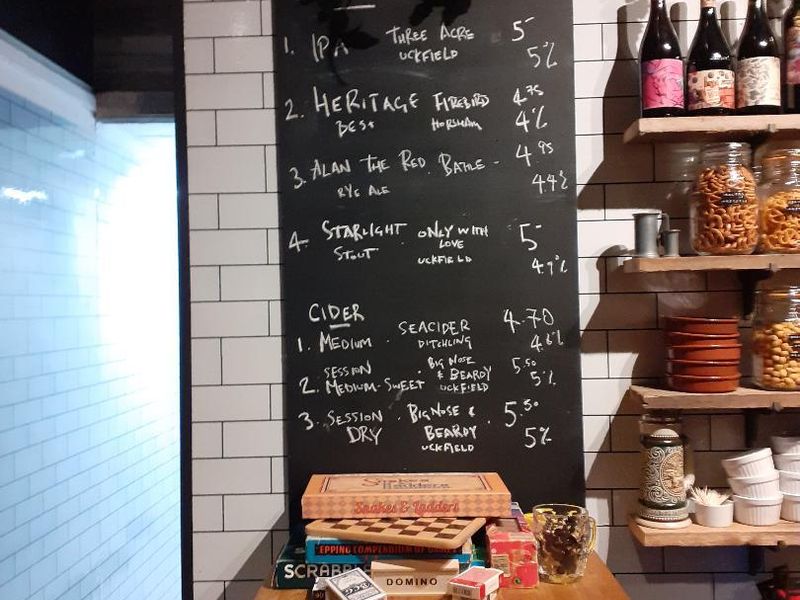 1. IPA THREE ACRE 5-
UCKFIELD 5%
2. HERITAGE FIREBIRD 4.75
BEST HORSHAM 4%
3. ALAN THE RED. BATTLE - 4.95
RYE ALE 4.4%
4. STARLIGHT ONLY WITH 5-
STOUT LOVE
UCKFIELD 4.9%
CIDER
1. MEDIUM . SEACIDER 4.70
DITCHLING 4.6%
SESSION . BIG NOSE 5.50
2. MEDIUM-SWEET & BEARDY 5%
UCKFIELD
3. SESSION . BIG NOSE & 5.50
DRY BEARDY 5%
UCKFIELD
Snakes & Ladders
Snakes & Ladders
EPPING COMPENDIUM OF GAMES
SCRABB
DOMINO